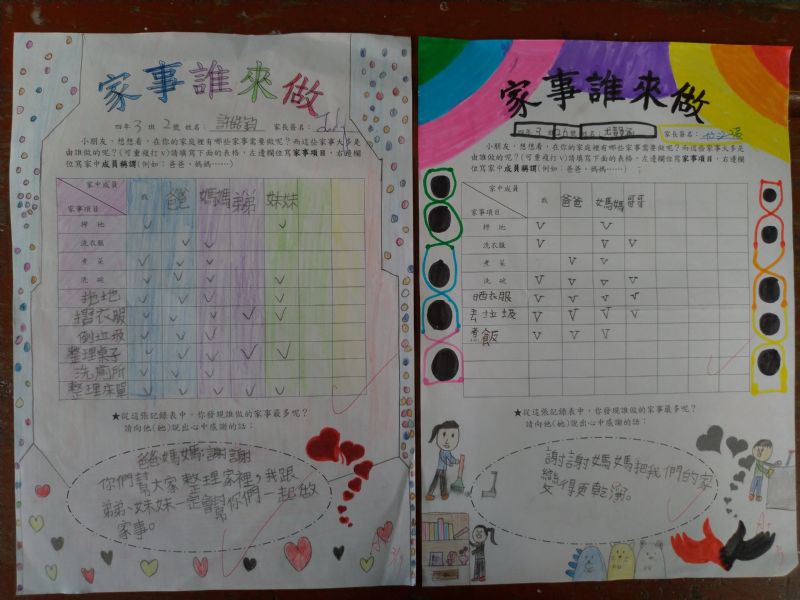 家事誰來做
四年 3 班 2 號 姓名：
家長簽名：
小朋友，想想看，在你的家庭裡有哪些家事需要做呢？而這些家事大多是
由誰做的呢？(可重複打V)請填寫下面的表格，左邊欄位寫家事項目，右邊欄
位寫家中成員稱謂(例如：爸爸、媽媽……)
家中成員
家事項目
我 爸爸 媽媽 弟弟 妹妹
掃地
洗衣服
煮菜
洗碗
拖地
摺衣服
倒垃圾
整理桌子
洗廁所
整理床單
★從這張記錄表中，你發現誰做的家事最多呢？
請向他(她)說出心中感謝的話：
爸爸媽媽:謝謝
你們幫大家整理家裡，我跟
弟弟、妹妹一定會幫你們一起做
家事。
家事誰來做
四年 3 班 號 姓名：
家長簽名：
小朋友，想想看，在你的家庭裡有哪些家事需要做呢？而這些家事大多是
由誰做的呢？(可重複打V)請填寫下面的表格，左邊欄位寫家事項目，右邊欄
位寫家中成員稱謂(例如：爸爸、媽媽……)
家中成員
家事項目
我 爸爸 媽媽 哥哥
掃地
洗衣服
煮菜
洗碗
晒衣服
丟垃圾
煮飯
★從這張記錄表中，你發現誰做的家事最多呢？
請向他(她)說出心中感謝的話：
謝謝媽媽把我們的家
變得更乾淨。